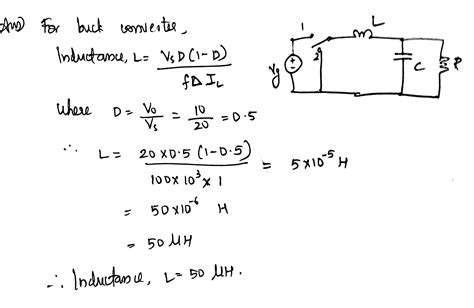 Ans) For buck converter,
Inductance, L = VsD(1-D) / fΔIL
where D = Vo / Vs = 10 / 20 = 0.5
∴ L = 20×0.5 (1-0.5) / 100×10³×1 = 5×10⁻⁵ H
= 50×10⁻⁶ H
= 50 μH
∴ Inductance, L = 50 μH.
1
2
L
Vg
C
R